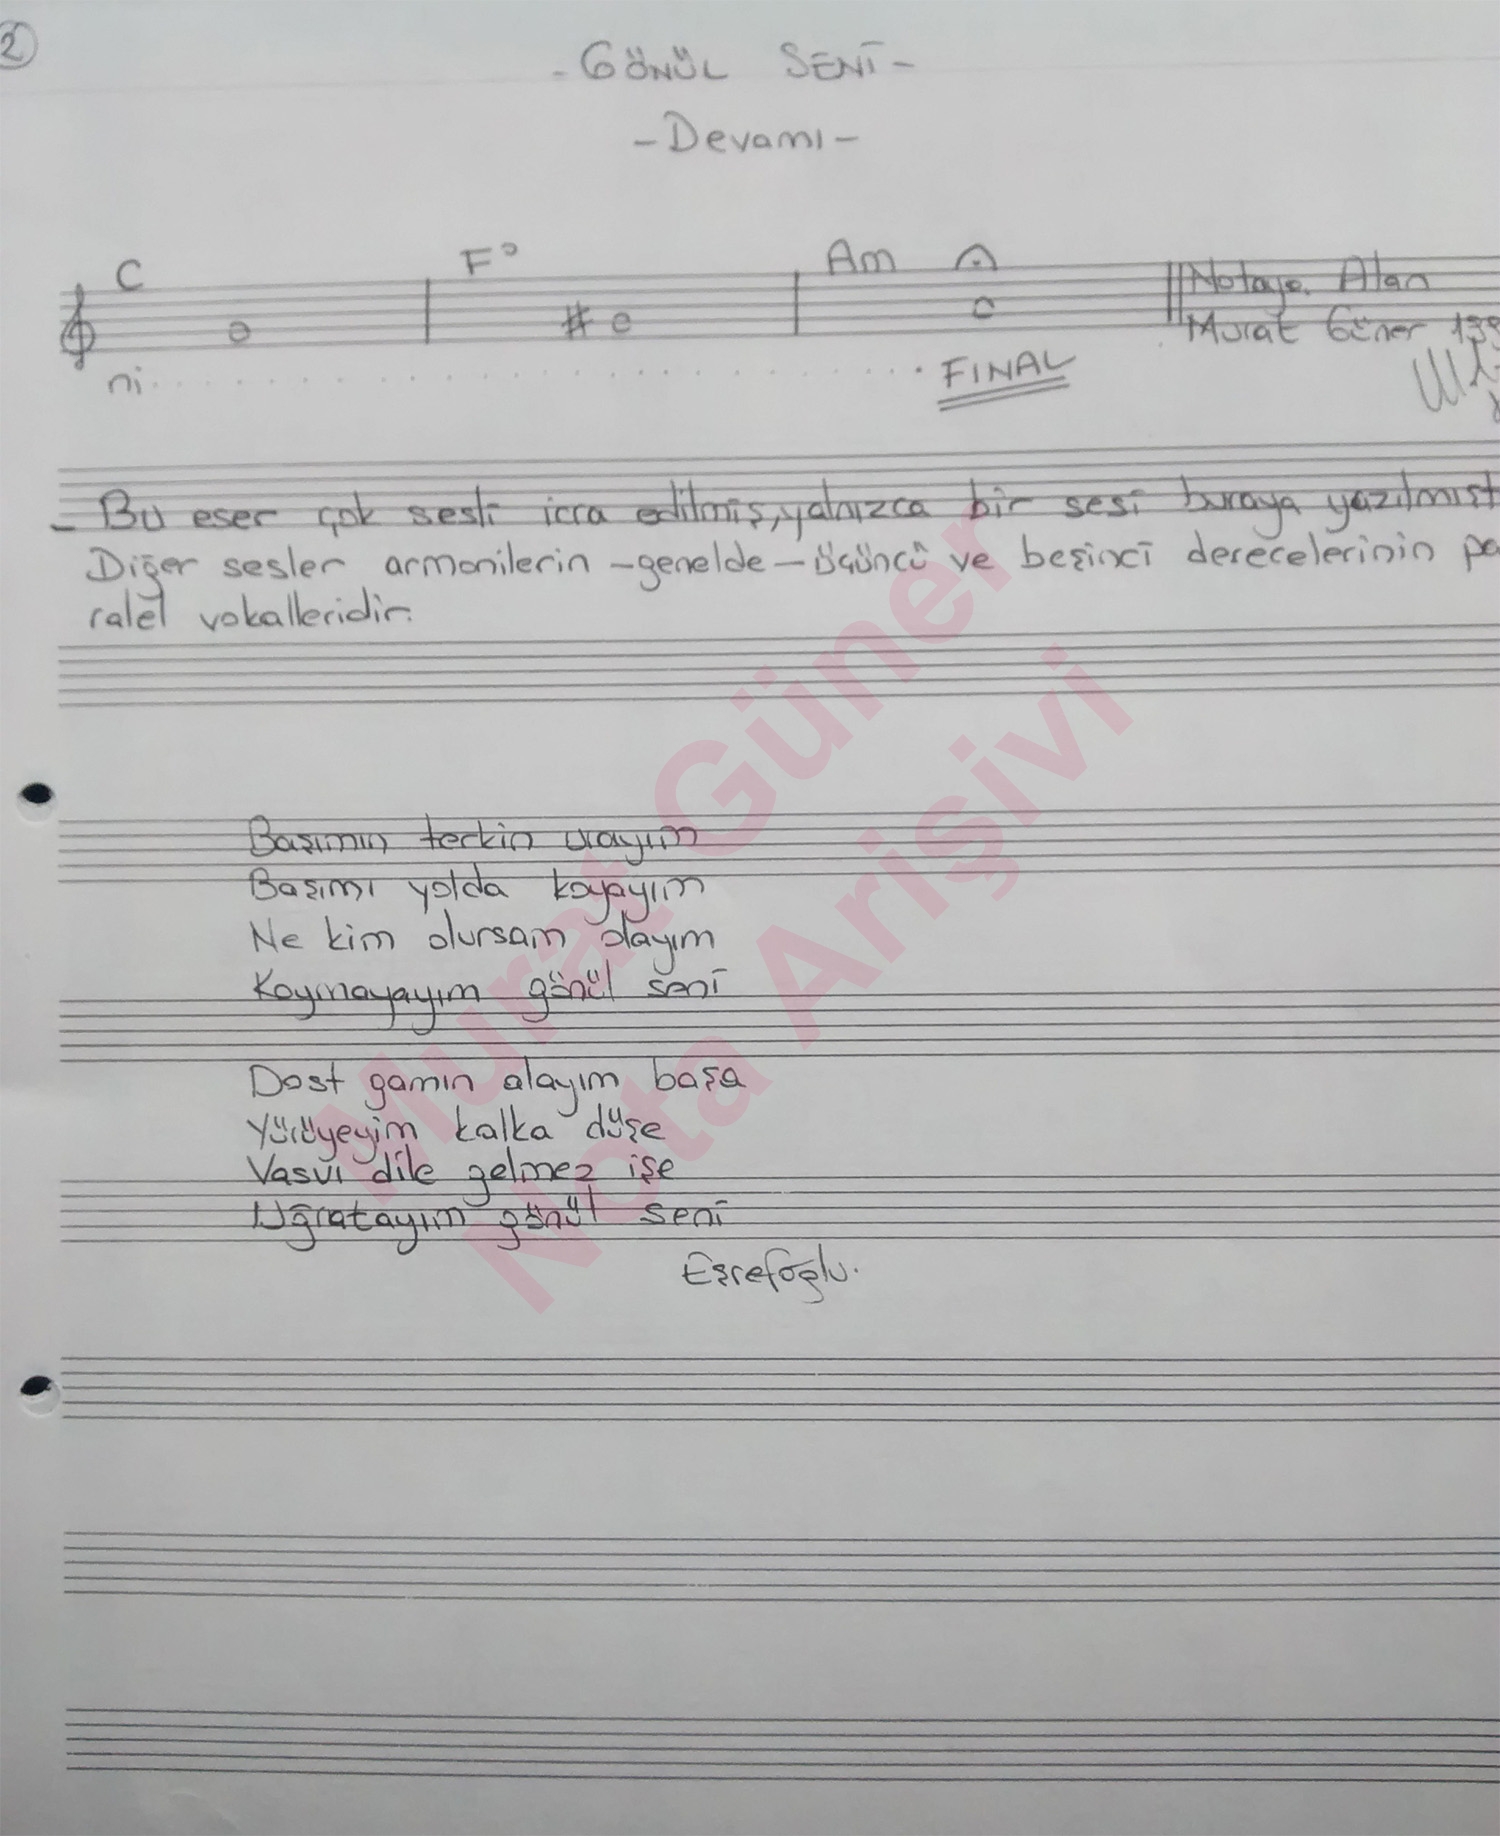 2
- GÖNÜL SENİ -
- Devamı -
C F° Am
ni . . . . . . . . . . . . . . . . . . FINAL
Notaya Alan
Murat Güner
- Bu eser çok sesli icra edilmiş, yalnızca bir sesi buraya yazılmışt
Diğer sesler armonilerin - genelde - üçüncü ve beşinci derecelerinin pa
ralel vokalleridir.
Başımın terkin urayım
Başımı yolda koyayım
Ne kim olursam olayım
Koymayayım gönül seni
Dost gamın alayım başa
Yürüyeyim kalka düşe
Vasvı dile gelmez işe
Uğratayım gönül seni
Eşrefoğlu.
Murat Güner
Nota Arişivi